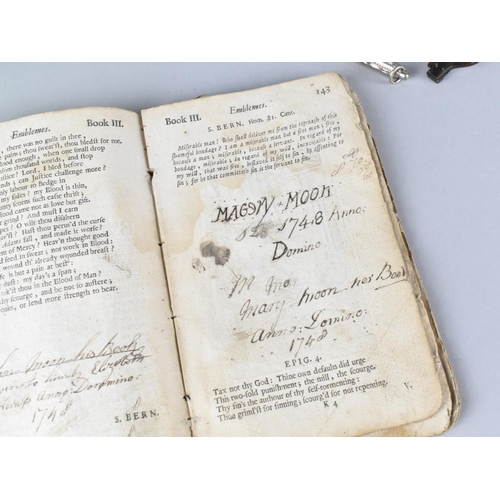 Book III.
Emblemes.
, there was no guilt in thee
pain; thou swear'dst, thou bledst for me.
lood enough, when one small drop
om thousand worlds, and stop
er? Lord, I bled before
nds; can Justice challenge more?
ly labour to hedge in
my sides? my Blood is thin,
anty scorns such easie thrift;
lood came not as love but gift.
grind? And must I earn
O wilt thou disturn
thou perus'd the curse
Adams fall, and made it worse?
nt of Mercy? Heav'n thought good
feed in sweat; not with Blood:
nd th' already wounded breast?
fe is but a pain at best:
my day's a span;
tak thou in the Blood of Man?
hy scourge, and be not so austere,
eaks, or lend more strength to bear.
Moon his Book
1748
S. BERN.
Book III.
Emblemes.
143
S. BERN. Hom. 81. Cant.
Miserable man! Who shall deliver me from the reproach of this
shameful bondage? I am a miserable man but a free man; free,
because a man; miserable, because a servant: In regard of my
bondage, miserable; in regard of my will, inexcusable: For
my will, that was free, inslaved it self to sin, by assenting to
sin; for he that committeth sin is the servant to sin.
MAGSRY MOON
1748 Anno:
Domino
M
Mary moon her Book
Anno: Domino:
1748
EPIG. 4.
Tax not thy God: Thine own defaults did urge
This two-fold punishment; the mill, the scourge,
Thy sin's the authour of thy self-tormenting:
Thou grind'st for sinning; scourg'd for not repenting.
K 4
V.